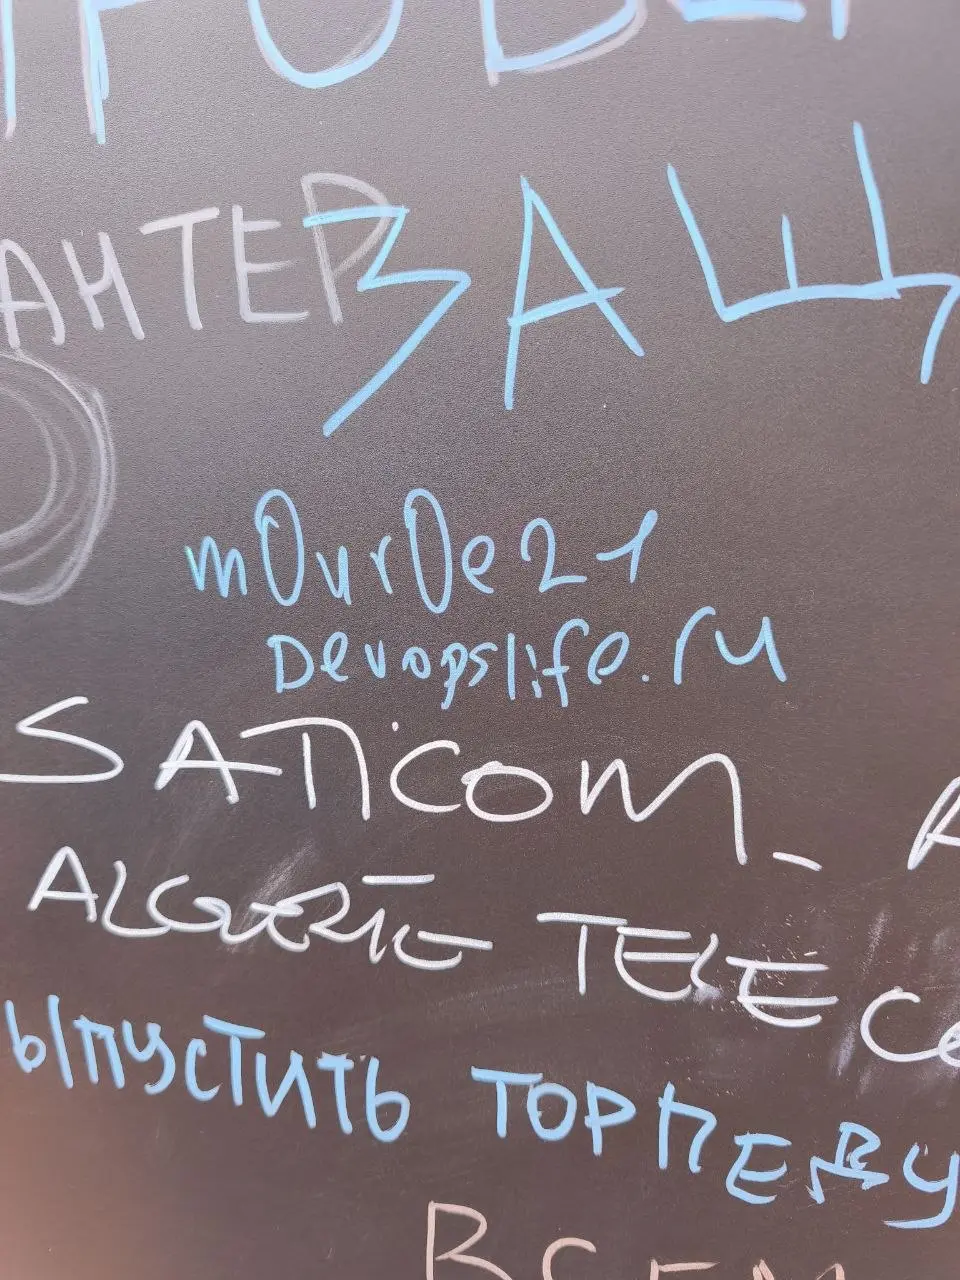 АНТЕР
ЗАЩ
m0ur0e21
Devopslife.ru
SATICOM_
ALGERIE TELECO
ЫПУСТИТЬ ТОРПЕДУ
ВСЕМ